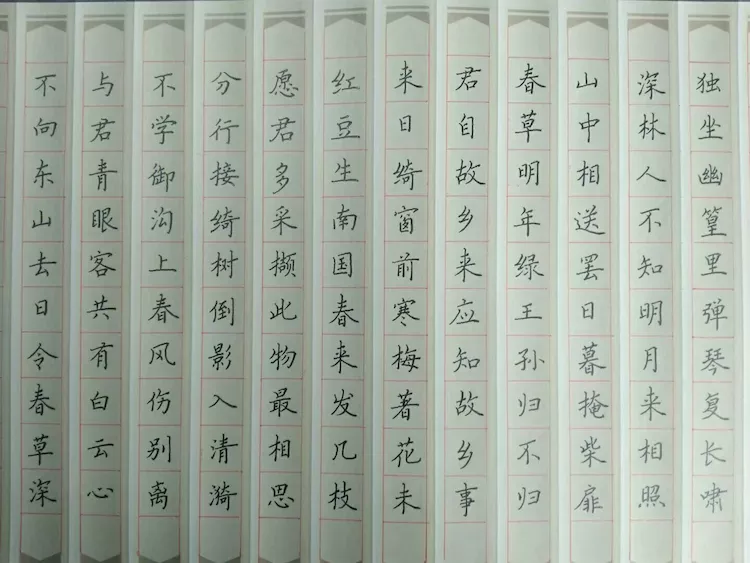 独坐幽篁里弹琴复长啸
深林人不知明月来相照
山中相送罢日暮掩柴扉
春草明年绿王孙归不归
君自故乡来应知故乡事
来日绮窗前寒梅著花未
红豆生南国春来发几枝
愿君多采撷此物最相思
分行接绮树倒影入清漪
不学御沟上春风伤别离
与君青眼客共有白云心
不向东山去日令春草深